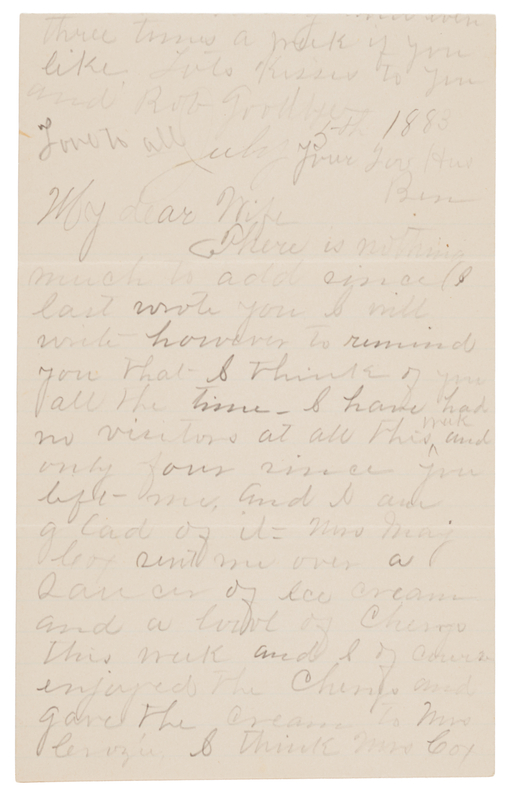 three times a week if you
like Lots Kisses to you
and Rob
Love to all July 5th 1883
Your Lov Hus
Ben
My dear Wife
There is nothing
much to add since I
last wrote you I will
write however to remind
you that I think of you
all the time - I have had
no visitors at all this week and
only four since you
left me, and I am
glad of it - Mrs Maj
Cox sent me over a
Saucer of Ice cream
and a bowl of Cherrys
this week and I of course
enjoyed the Cherrys and
gave the cream to Mrs
I think Mrs Cox